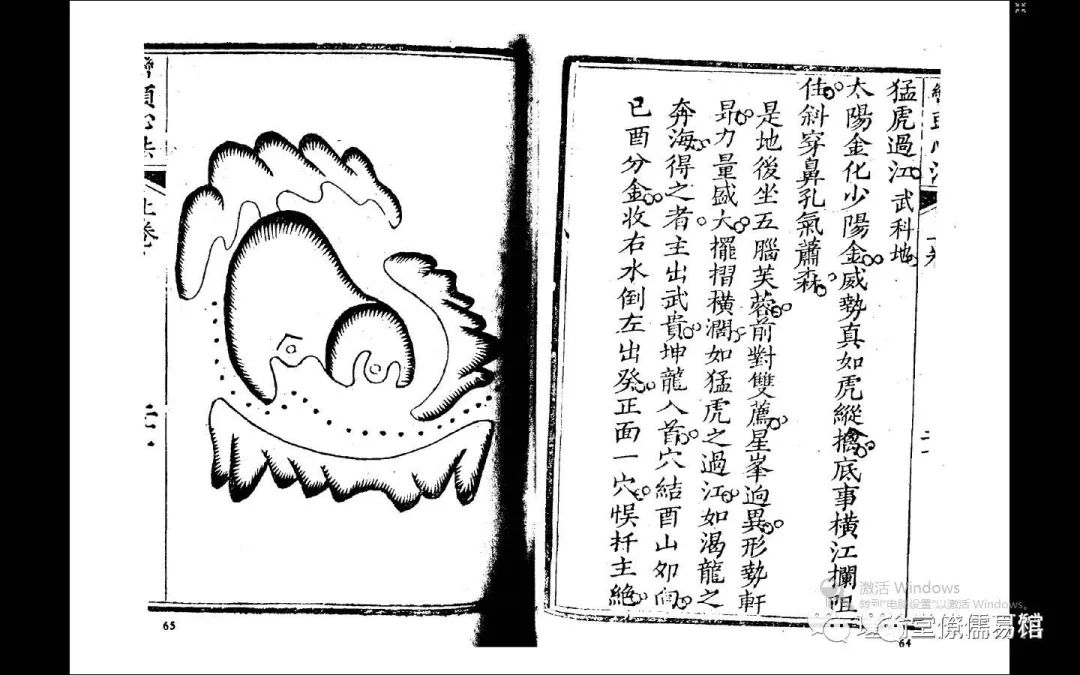 猛虎過江 武科地
太陽金化少陽金威勢真如虎縱擒底事橫江攔阻
住斜穿鼻孔氣蕭森
是地後坐五腦芙蓉前對雙薦星峯逈異形勢軒
昻力量盛大擺摺橫濶如猛虎之過江如渴龍之
奔海得之者主出武貴坤龍入首穴結酉山夘向
巳酉分金收右水倒左出癸正面一穴悞扦主絶
64
上卷
65
激活 Windows
转到"电脑设置"以激活 Windows。
堂僚儒易馆